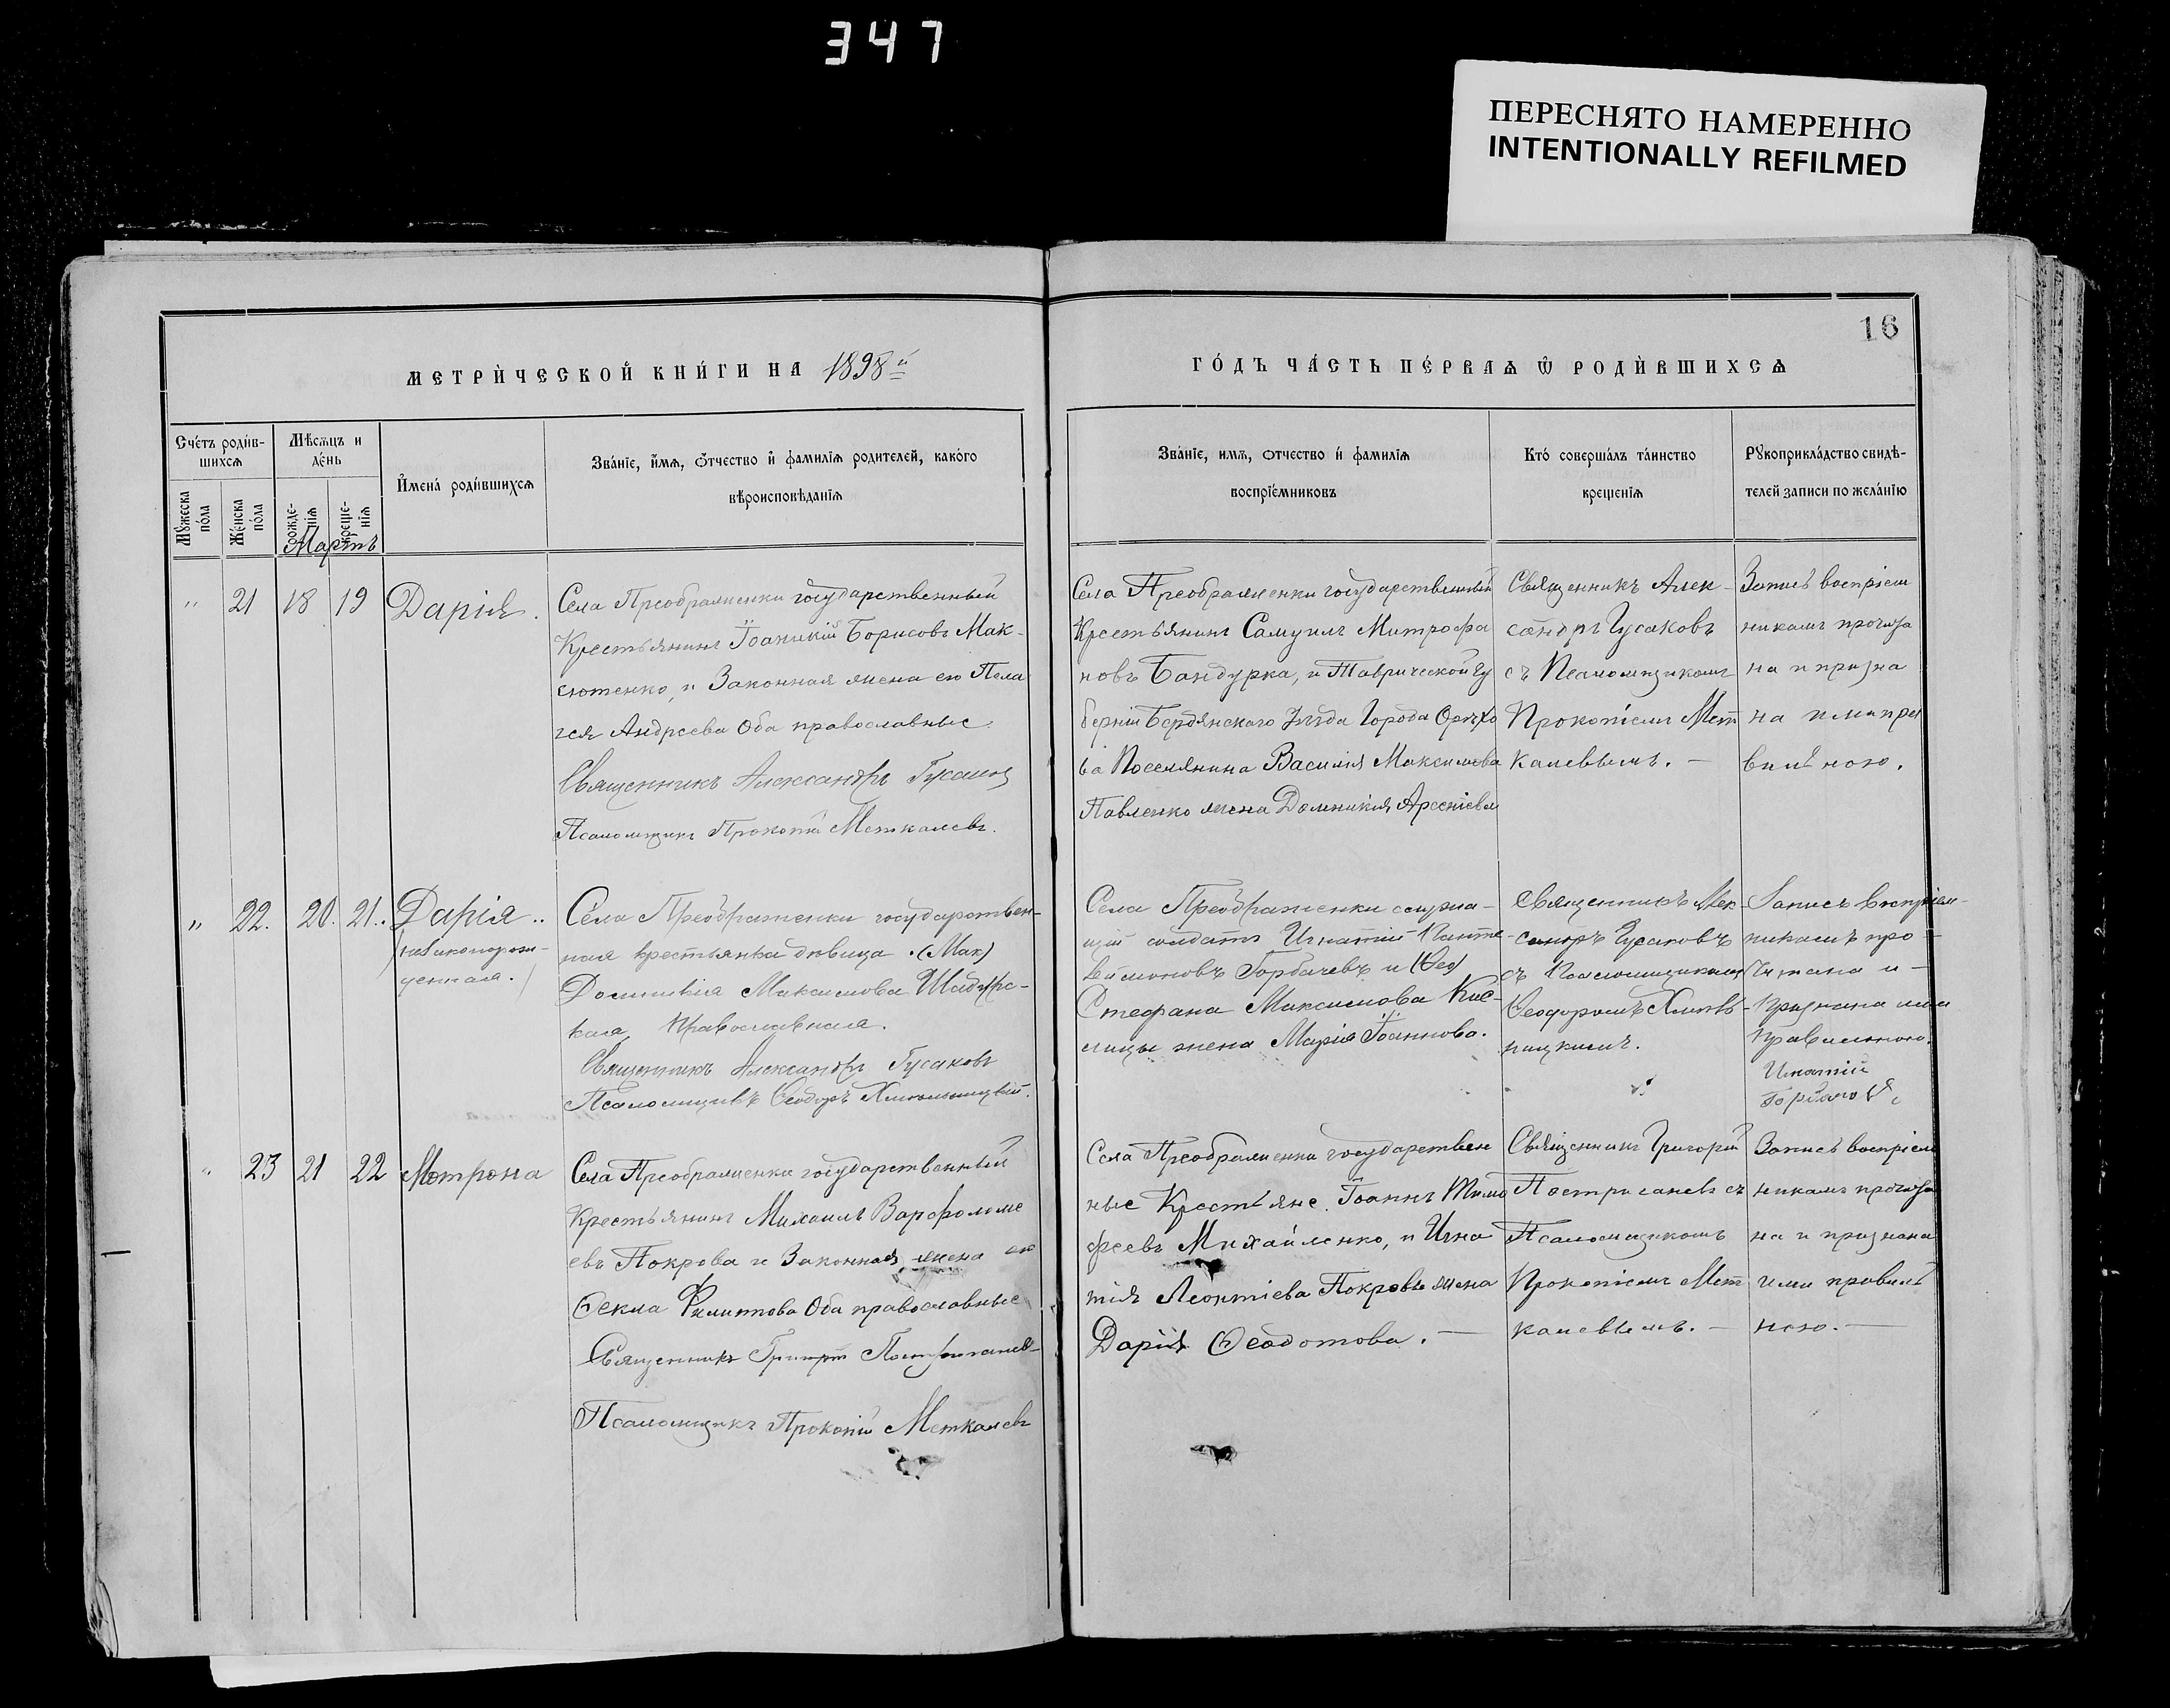 347
ПЕРЕСНЯТО НАМЕРЕННО
INTENTIONALLY REFILMED
16
МЕТРИ́ЧЕСКОЙ КНИ́ГИ НА 1898й
ГО́ДЪ ЧА́СТЬ ПЕ́РВАѦ Ѡ РОДИ́ВШИХСѦ
Сче́тъ роди́в-
шихсѧ
Мѣсѧцъ и
де́нь
Мꙋжеска
по́ла
Же́нска
по́ла
рожде-
нїѧ
креще-
нїѧ
И҆мена̀ роди́вшихсѧ
Зва́нїе, и҆́мѧ, ѻ҆́тчество и҆ фамилїѧ родителей, како́гѡ
вѣроисповѣданїѧ
Зва́нїе, имѧ, отчество и҆ фамилїѧ
воспрїе́мниковъ
Кто̀ соверша́лъ та́инство
крещенїѧ
Рꙋкоприкла́дство свидѣ-
телей записи по жела́нїю
Мартъ
" 21 18 19 Дарія.
Села Преображенки государственный
Крестьянинъ Іоаникій Борисовъ Мак-
сютенко, и Законная жена его Пела
гея Андреева Оба православные.
Священникъ Александръ Гусаковъ
Псаломщикъ Прокопій Меткалевъ.
Села Преображенки государственный
Крестьянинъ Самуилъ Митрофа
новъ Бандурка, и Таврической Гу
берніи Бердянскаго Уѣзда Города Орѣхо
ва Поселянина Василія Максимова
Павленко жена Домникія Арсеніева
Священникъ Алек-
сандръ Гусаковъ
съ Псаломщикомъ
Прокопіемъ Мет
калевымъ. —
Запись воспріем
никамъ прочита
на и призна
на ими пра
вильною.
" 22. 20. 21. Дарія..
Села Преображенки государствен-
ная крестьянка девица (Мак)
Домникія Максимова
кая, Православная.
Священникъ Александръ Гусаковъ
Псаломщикъ Ѳеодоръ Хмельницкій.
Села Преображенки
солдатъ Игнатій Панте-
леймоновъ Горбачевъ и (Ѳео)
Стефана Максимова Кис-
лицы жена Марія Іоаннова.
Священникъ Алек-
сандръ Гусаковъ
съ Псаломщикомъ
Ѳеодоромъ Хмель-
ницкимъ.
Запись воспріем-
никамъ про-
читана и -
признана ими
правильною.
Игнатій
" 23 21 22 Мотрона
Села Преображенки государственный
Крестьянинъ Михаилъ Варфоломе
евъ Покрова и Законная жена его
Ѳекла Филиппова Оба православные
Священникъ Григорій Постригачевъ
Псаломщикъ Прокопій Меткалевъ
Села Преображенки государствен
ные Крестьяне. Іоаннъ Тимо
феевъ Михайленко, и Игна
тія Леонтіева Покровы жена
Дарія Ѳеодотова. —
Священникъ Григорій
Постригачевъ съ
Псаломщикомъ
Прокопіемъ Мет
калевымъ. —
Запись воспріем
никамъ прочита
на и признана
ими правиль
ною. —